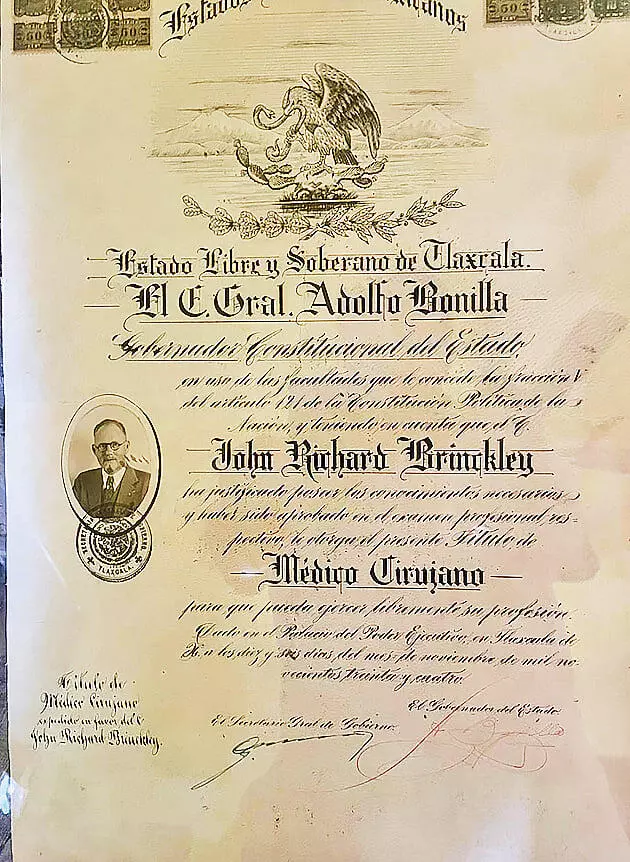 50 50 50
Estados
Estado Libre y Soberano de Tlaxcala.
El C. Gral. Adolfo Bonilla
Gobernador Constitucional del Estado,
en uso de las facultades que le concede la fracción V
del artículo 121 de la Constitución Política de la
Nación, y teniendo en cuenta que el C.
John Richard Brinckley
ha justificado poseer los conocimientos necesarios
y haber sido aprobado en el examen profesional res-
pectivo, le otorga el presente Título de
Médico Cirujano
para que pueda ejercer libremente su profesión.
Dado en el Palacio del Poder Ejecutivo, en Tlaxcala de
X. a los diez y seis días del mes de noviembre de mil no-
vecientos treinta y cuatro.
TLAXCALA.
Título de
Médico Cirujano
expedido en favor del C.
John Richard Brinckley.
El Secretario Gral de Gobierno.
El Gobernador del Estado.